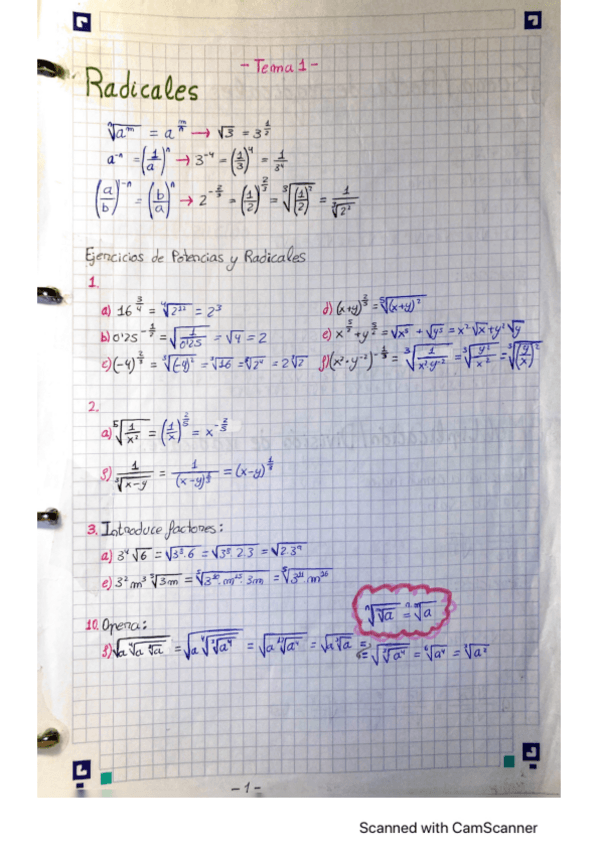 - Tema 1 -
Radicales
ⁿ√aᵐ = a^(m/n) → √3 = 3^(1/2)
a⁻ⁿ = (1/a)ⁿ → 3⁻⁴ = (1/3)⁴ = 1/3⁴
(a/b)⁻ⁿ = (b/a)ⁿ → 2^(-2/3) = (1/2)^(2/3) = ³√(1/2)² = 1/³√2²
Ejercicios de Potencias y Radicales
1.
a) 16^(3/4) = ⁴√2¹² = 2³
b) 0'25^(-1/2) = √(1/0'25) = √4 = 2
c) (-4)^(2/3) = ³√(-4)² = ³√16 = ³√2⁴ = 2³√2
d) (x+y)^(2/5) = ⁵√(x+y)²
e) x^(5/2) + y^(5/2) = √x⁵ + √y⁵ = x²√x + y²√y
f) (x²·y⁻²)^(-1/3) = ³√(1/x²y⁻²) = ³√(y²/x²) = ³√(y/x)²
2.
a) ⁵√(1/x²) = (1/x)^(2/5) = x^(-2/5)
f) 1/³√(x-y) = 1/(x-y)^(1/3) = (x-y)
3. Introduce factores:
a) 3⁴√6 = √(3⁸·6) = √(3⁸·2·3) = √(2·3⁹)
e) 3²m³ ⁵√3m = ⁵√(3¹⁰·m¹⁵·3m) = ⁵√(3¹¹·m¹⁶)
ⁿ√ᵐ√a = ⁿ·ᵐ√a
10. Opera:
f)
- 1 -
Scanned with CamScanner